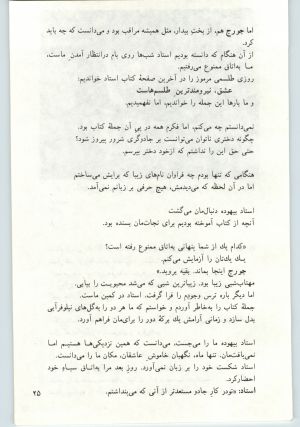 اما جورج هم، از بختِ بیدار، مثل همیشه مراقب بود و می‌دانست که چه باید
کرد.
از آن هنگام که دانسته بودیم استاد شب‌ها روی بام درانتظار آمدن ماست،
ما به‌اتاق ممنوع می‌رفتیم.
روزی طلسمی مرموز را در آخرین صفحهٔ کتاب استاد خواندیم:
عشق، نیرومندترین طلسم‌هاست
و ما بارها این جمله را خواندیم، اما نفهمیدیم.
نمی‌دانستم چه می‌کنم، اما فکرم همه در پی آن جملهٔ کتاب بود.
چگونه دختری ناتوان می‌توانست بر جادوگری شرور پیروز شود؟
حتی حق این را نداشتم که ازخود دختر بپرسم.
هنگامی که تنها بودم چه فراوان نام‌های زیبا که برایش می‌ساختم
اما در آن لحظه که می‌دیدمش، هیچ حرفی بر زبانم نمی‌آمد.
استاد بیهوده دنبال‌مان می‌گشت
آنچه از کتاب آموخته بودیم برای نجات‌مان بسنده بود.
«کدام یك از شما پنهانی به‌اتاق ممنوع رفته است؟
یك یك‌تان را آزمایش می‌کنم.
جورج اینجا بماند. بقیه بروید.»
مهتاب‌شبی زیبا بود. زیباترین شبی که می‌شد محبوبت را بیابی.
اما دیگر باره ترس وجودم را فرا گرفت. استاد در کمین ماست.
جملهٔ کتاب را به‌خاطر آوردم و خواستم که ما هر دو را به‌گل‌های نیلوفرآبی
بدل سازد و زمانی آرامش یك برکهٔ دور را برای‌مان فراهم آورد.
استاد بیهوده ما را می‌جست، می‌دانست که همین نزدیکی‌ها هستیم اما
نمی‌یافت‌مان. تنها ماه، نگهبان خاموش عاشقان، مکان ما را می‌دانست.
استاد شکست خود را بر زبان نمی‌آورد. روز بعد مرا به‌اتاق سیاه خود
احضارکرد.
استاد: «تودر کار جادو مستعدتر از آنی که می‌پنداشتم.
۲۵